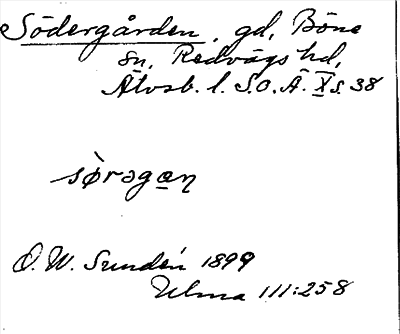 Södergården, gd, Böne
sn, Redvägs hd,
Älvsb. l. S.O.Ä. X s. 38
sø̀ragan
O. W. Sundén 1899
Ulma 111:258